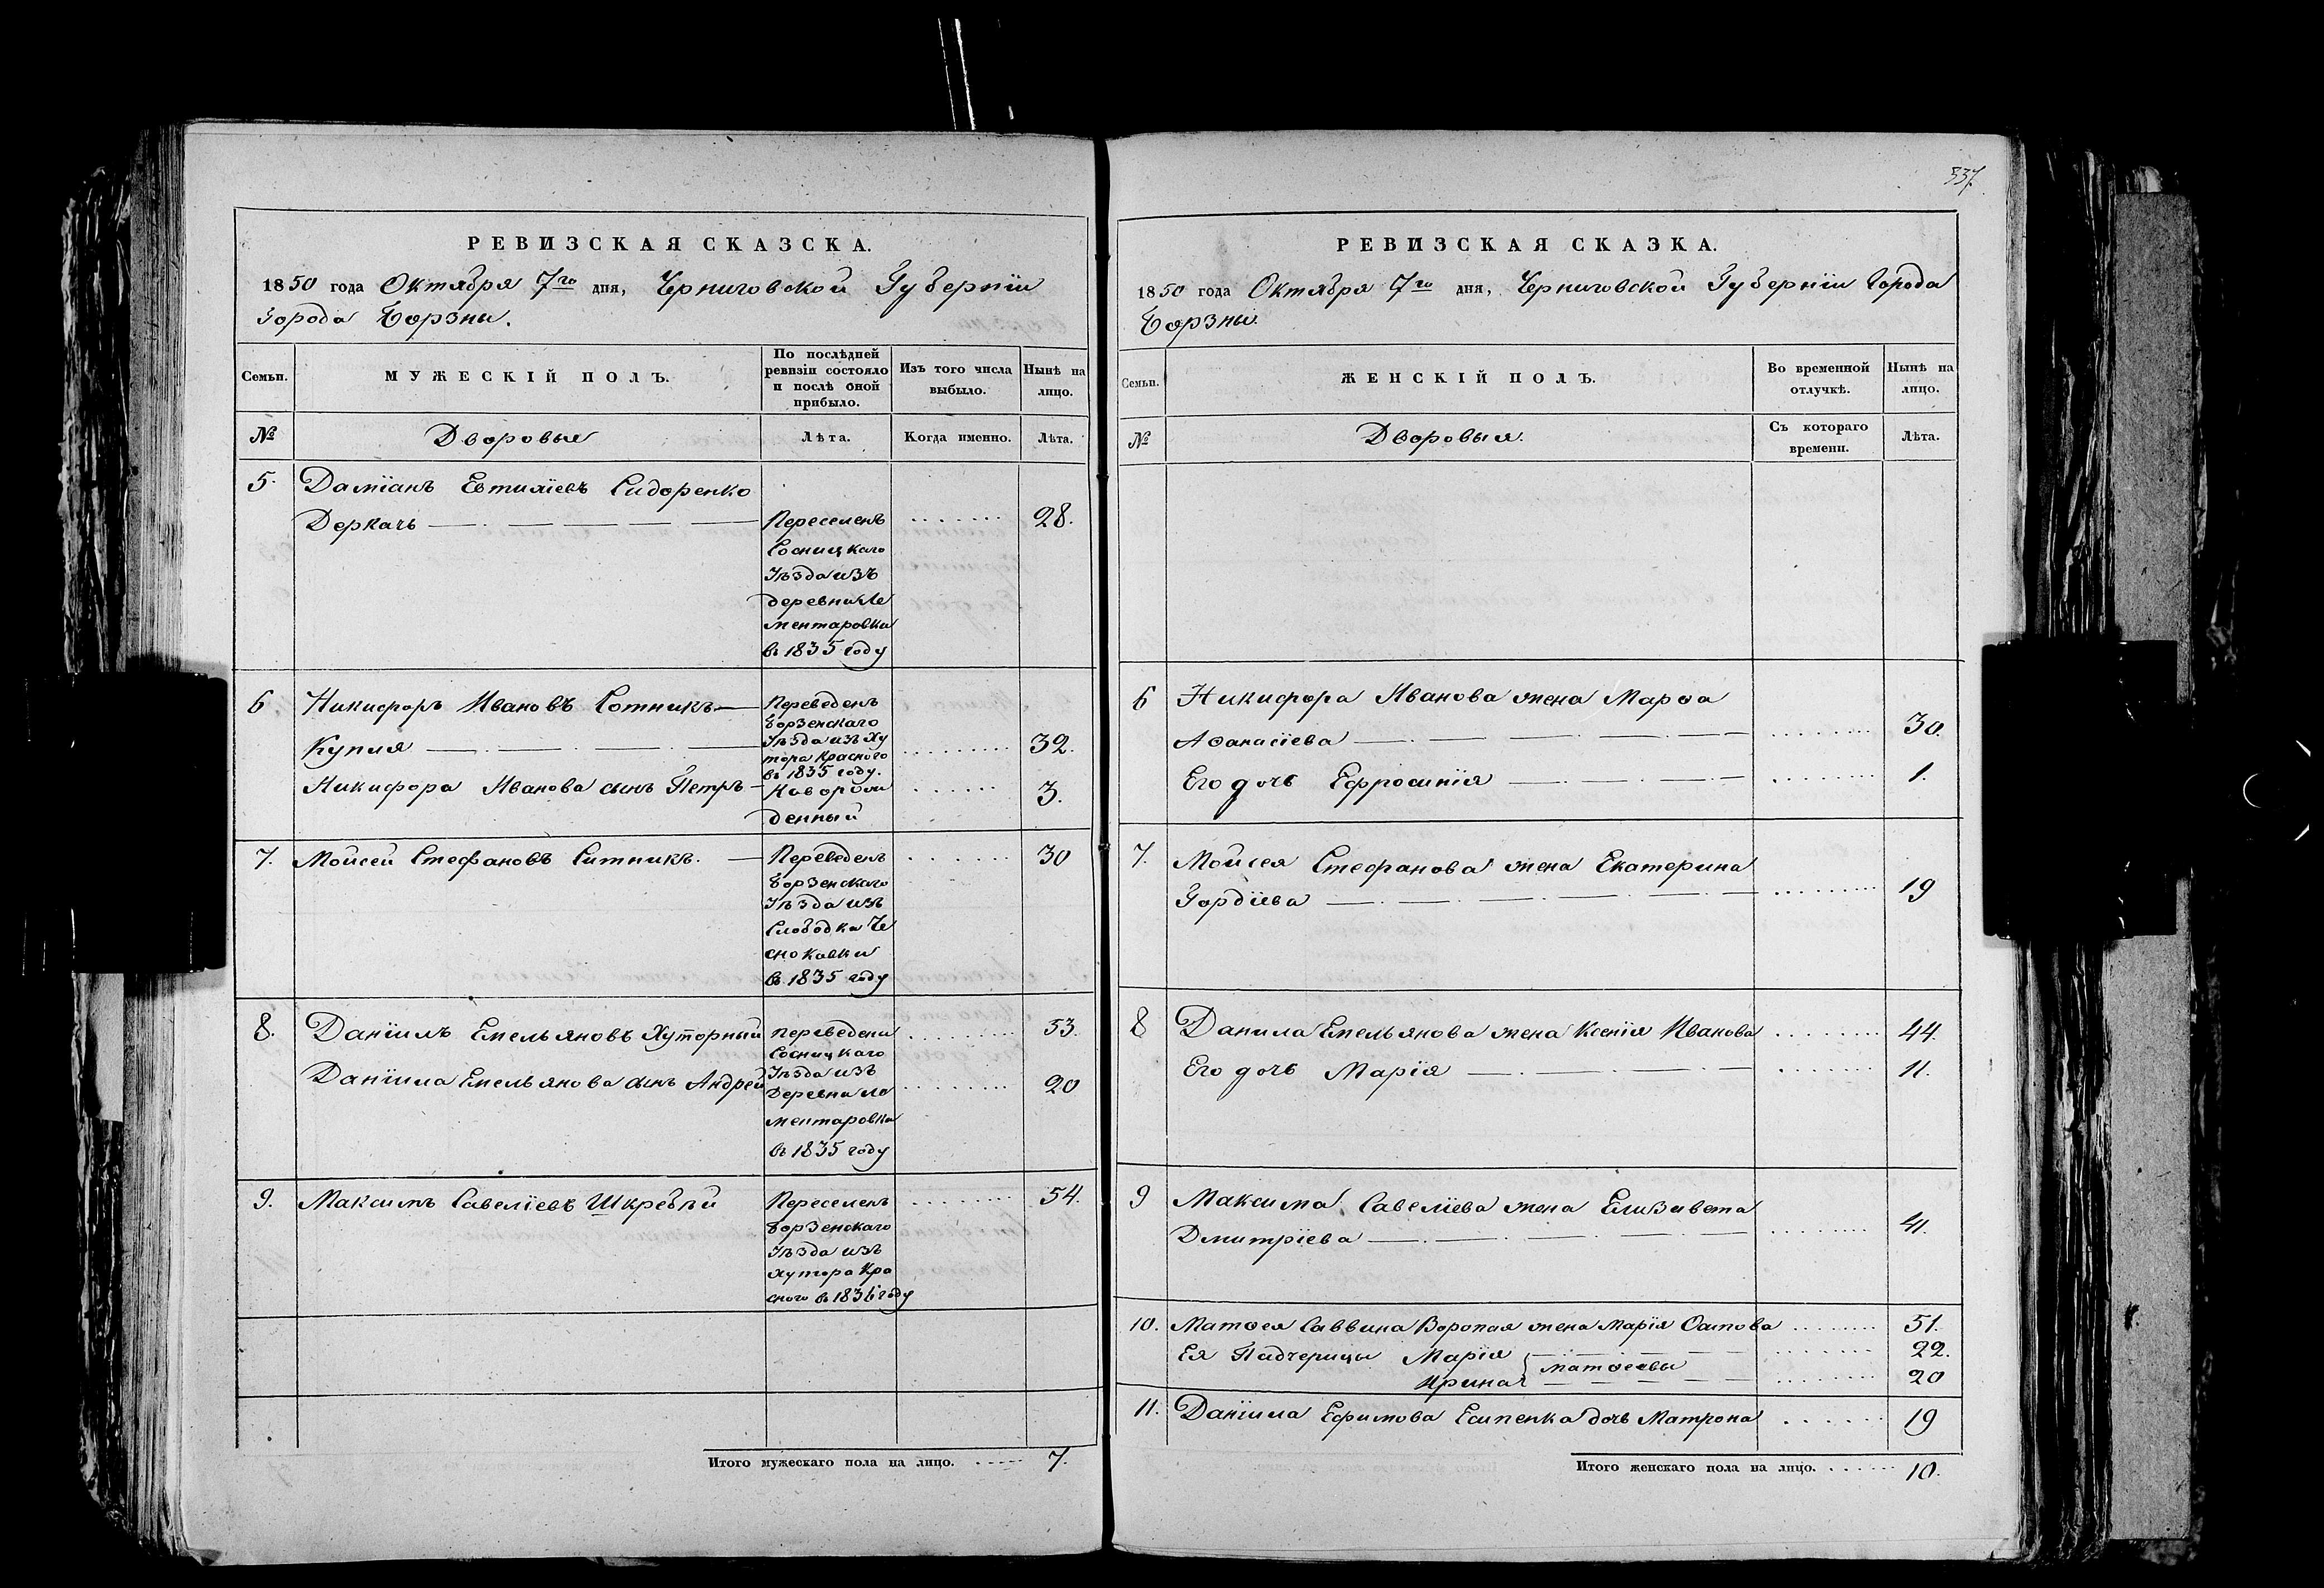 РЕВИЗСКАЯ СКАЗСКА.
1850 года Октября 7го дня, Черниговской Губерніи
города Борзны.
Семьи.
МУЖЕСКІЙ ПОЛЪ.
По послѣдней
ревизіи состояло
и послѣ оной
прибыло.
Изъ того числа
выбыло.
Нынѣ на
лицо.
№
Дворовыя
Лѣта.
Когда именно.
Лѣта.
5. Даміанъ Евтихіевъ Сидоренко
Деркачъ — Переселенъ 28.
Сосницкаго
Уѣзда изъ
деревни Ле
ментаровки
въ 1835 году
6 Никифоръ Ивановъ Сотникъ — Переведенъ
Борзенскаго
Уѣзда изъ Ху
Купия — 32.
тора Краснаго
въ 1835 году.
Никифора Иванова сынъ Петръ — Новорож 3.
денный
7. Мойсей Стефановъ Ситникъ. — Переведенъ 30
Борзенскаго
Уѣзда изъ
Слободки Че
сноковки
въ 1835 году
8. Даніилъ Емельяновъ Хуторный Переведены 53.
Сосницкаго
Уѣзда изъ
Даніила Емельянова сынъ Андрей 20
Деревни Ле
ментаровки
въ 1835 году
9. Максимъ Савеліевъ Шкребѣй Переселенъ 54.
Борзенскаго
Уѣзда изъ
хутора Кра
снаго въ 1836 году
Итого мужескаго пола на лицо. 7.
337.
РЕВИЗСКАЯ СКАЗКА.
1850 года Октября 7го дня, Черниговской Губерніи города
Борзны.
Семьи.
ЖЕНСКІЙ ПОЛЪ.
Во временной
отлучкѣ.
Нынѣ на
лицо.
№
Дворовыя.
Съ котораго
времени.
Лѣта.
6 Никифора Иванова жена Марѳа
Аѳанасіева — 30.
Его дочь Ефросинія — 1.
7. Мойсея Стефанова жена Екатерина
Гордіева — 19
8 Данила Емельянова жена Ксенія Иванова 44.
Его дочь Марія — 11.
9 Максима Савеліева жена Елизавета
Дмитріева — 41.
10. Матѳея Саввина Воропая жена Марія Осипова 51.
Ея Падчерицы Марія 22.
Матѳеевы
Ирина 20
11. Даніила Ефимова Есипенка дочь Матрона 19
Итого женскаго пола на лицо. 10.